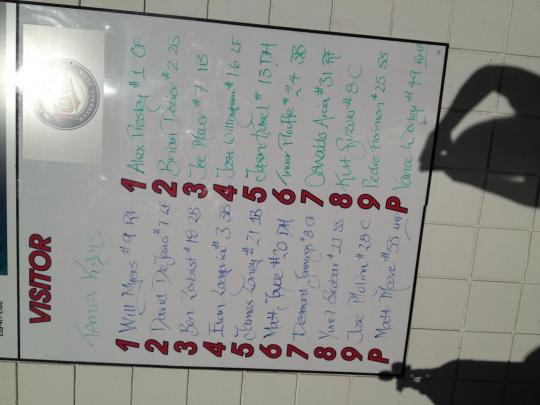 VISITOR
Tampa Rays
1 Will Myers #9 RF
2 David DeJesus #7 LF
3 Ben Zobrist #18 2B
4 Evan Longoria #3 3B
5 James Loney #21 1B
6 Matt Joyce #20 DH
7 Desmond Jennings #8 CF
8 Yunel Escobar #11 SS
9 Jose Molina #28 C
P Matt Moore #55
1 Alex Presley #1 CF
2 Brian Dozier #2 2B
3 Joe Mauer #7 1B
4 Josh Willingham #16 LF
5 Jason Kubel #13 DH
6 Trevor Plouffe #24 3B
7 Oswaldo Arcia #31 RF
8 Kurt Suzuki #8 C
9 Pedro Florimon #25 SS
P Vance Worley #49 RHP